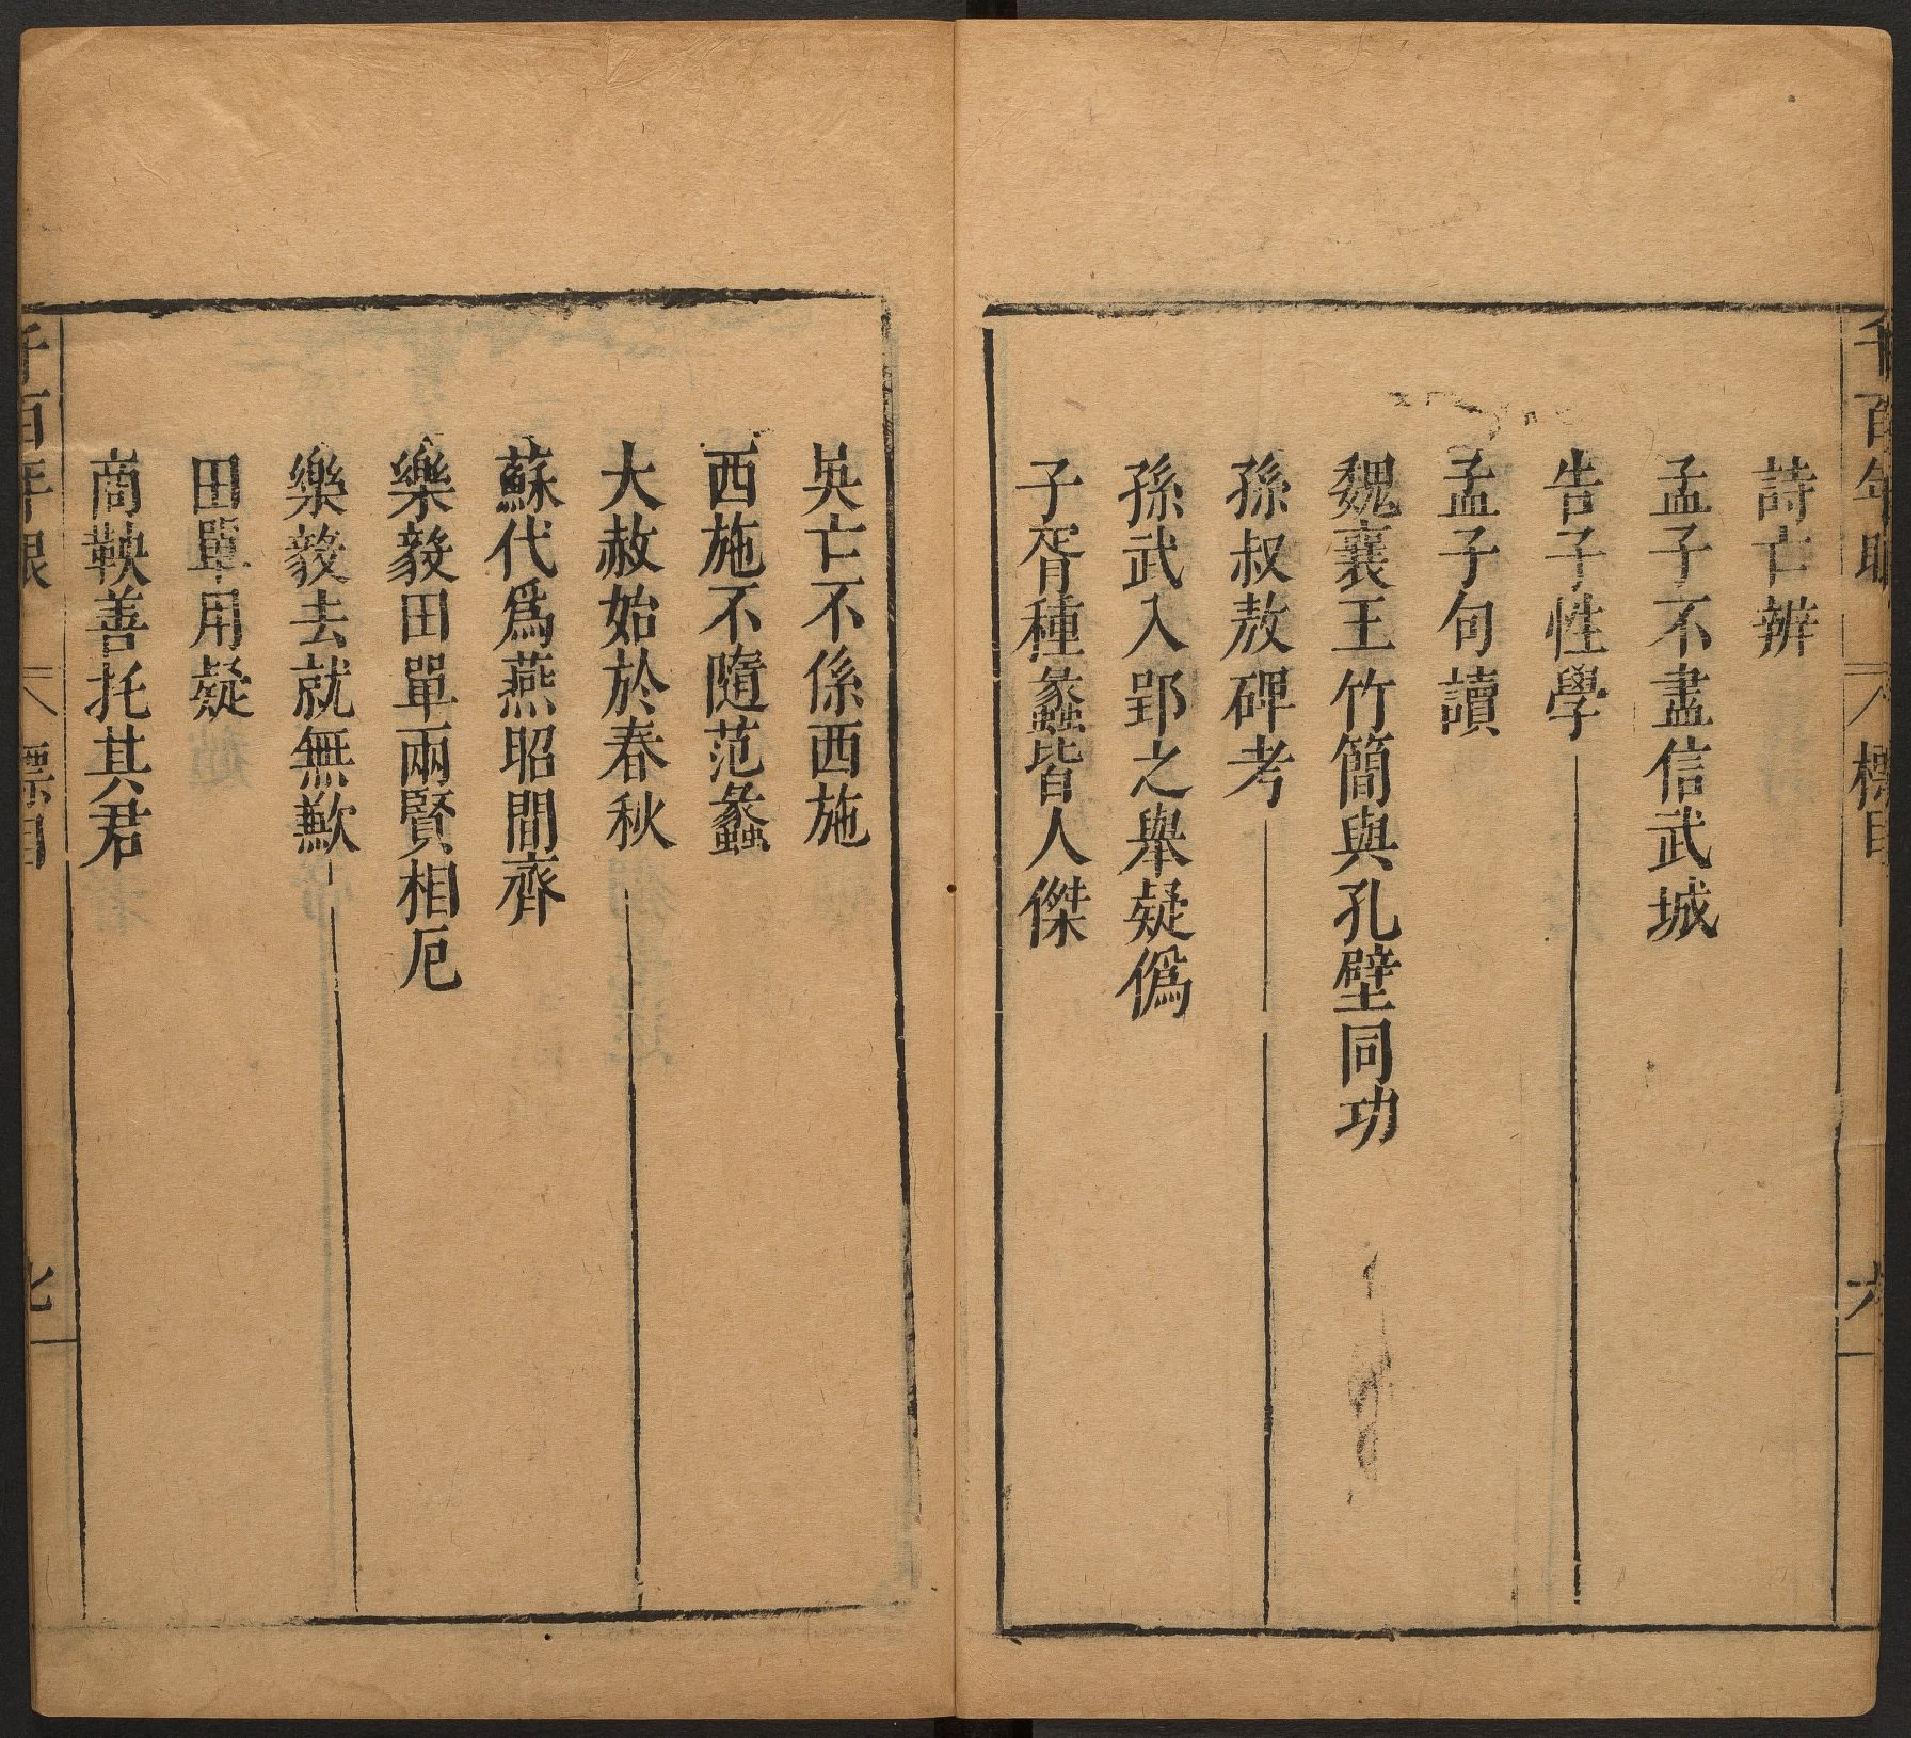 千百年眼 標目 六
詩亡辨
孟子不盡信武城
告子性學
孟子句讀
魏襄王竹簡與孔壁同功
孫叔敖碑考
孫武入郢之舉疑僞
子胥種蠡皆人傑
吳亡不係西施
西施不隨范蠡
大赦始於春秋
蘇代爲燕昭間齊
樂毅田單兩賢相厄
樂毅去就無歉
田單用疑
商鞅善托其君
千百年眼 標目 七